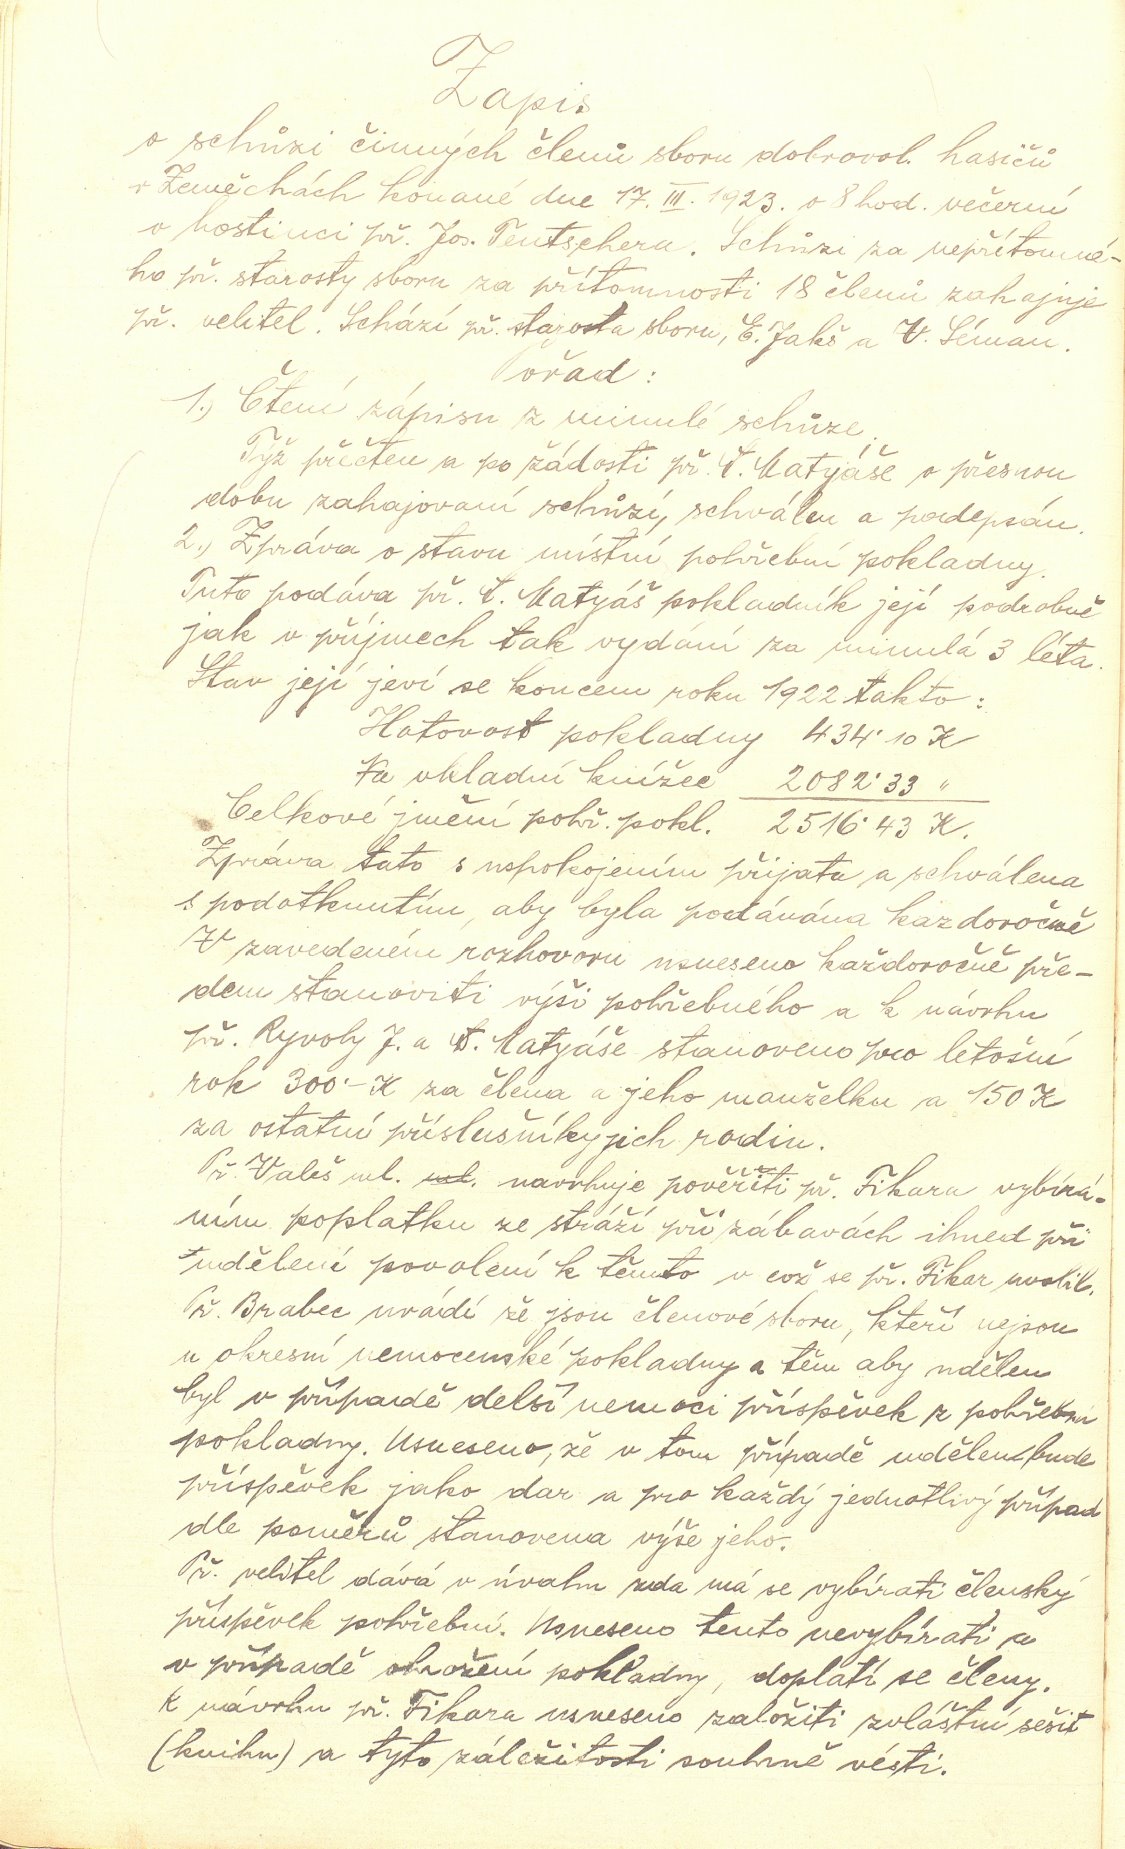 Zapis
o schůzi činných členů sboru dobrovol. hasičů
v Zeměchách konané dne 17. III. 1923. o 8 hod. večerní
v hostinci př. Jos. Tentschera. Schůzi za nepřítomné-
ho př. starosty sboru za přítomnosti 18 členů zahajuje
př. velitel. Schází př. starosta sboru, E. Jakš a V. Séman.
Pořad:
1.) Čtení zápisu z minulé schůze.
Týž přečten a po žádosti př. Č. Matyáše o přesnou
dobu zahajovaní schůzí, schválen a podepsán.
2.) Zpráva o stavu místní pohřební pokladny.
Tuto podáva př. Č. Matyáš pokladník její podrobně
jak v příjmech tak vydání za minulá 3 léta.
Stav její jeví se koncem roku 1922 takto:
Hotovost pokladny 434·10 K
Na vkladní knížce 2082·33 "
Celkové jmění pohř. pokl. 2516·43 K.
Zpráva tato s uspokojením přijata a schválena
s podotknutím, aby byla podávána každoročně
V zavedeném rozhovoru usneseno každoročně pře-
dem stanoviti výši pohřebného a k návrhu
př. Ryvoly J. a Č. Matyáše stanoveno pro letošní
rok 300·– K za člena a jeho manželku a 150 K
za ostatní příslušníky jich rodin.
Př. Valeš ml. ml. navrhuje pověřiti př. Fikara vybírá-
ním poplatku ze stráží při zábavách ihned při
udělení povolení k těmto v což se př. Fikar uvolil.
Př. Brabec uvádí že jsou členové sboru, kteří nejsou
u okresní nemocenské pokladny a těm aby udělen
byl v případě delší nemoci příspěvek z pohřební
pokladny. Usneseno, že v tom případě udělen bude
příspěvek jako dar a pro každý jednotlivý případ
dle poměrů stanovena výše jeho.
Př. velitel dává v úvahu zda má se vybírati členský
příspěvek pohřební. Usneseno tento nevybírati a
v případě ohrožení pokladny, doplatí se členy.
K návrhu př. Fikara usneseno založiti zvláštní sešit
(knihu) a tyto záležitosti souhrně vésti.